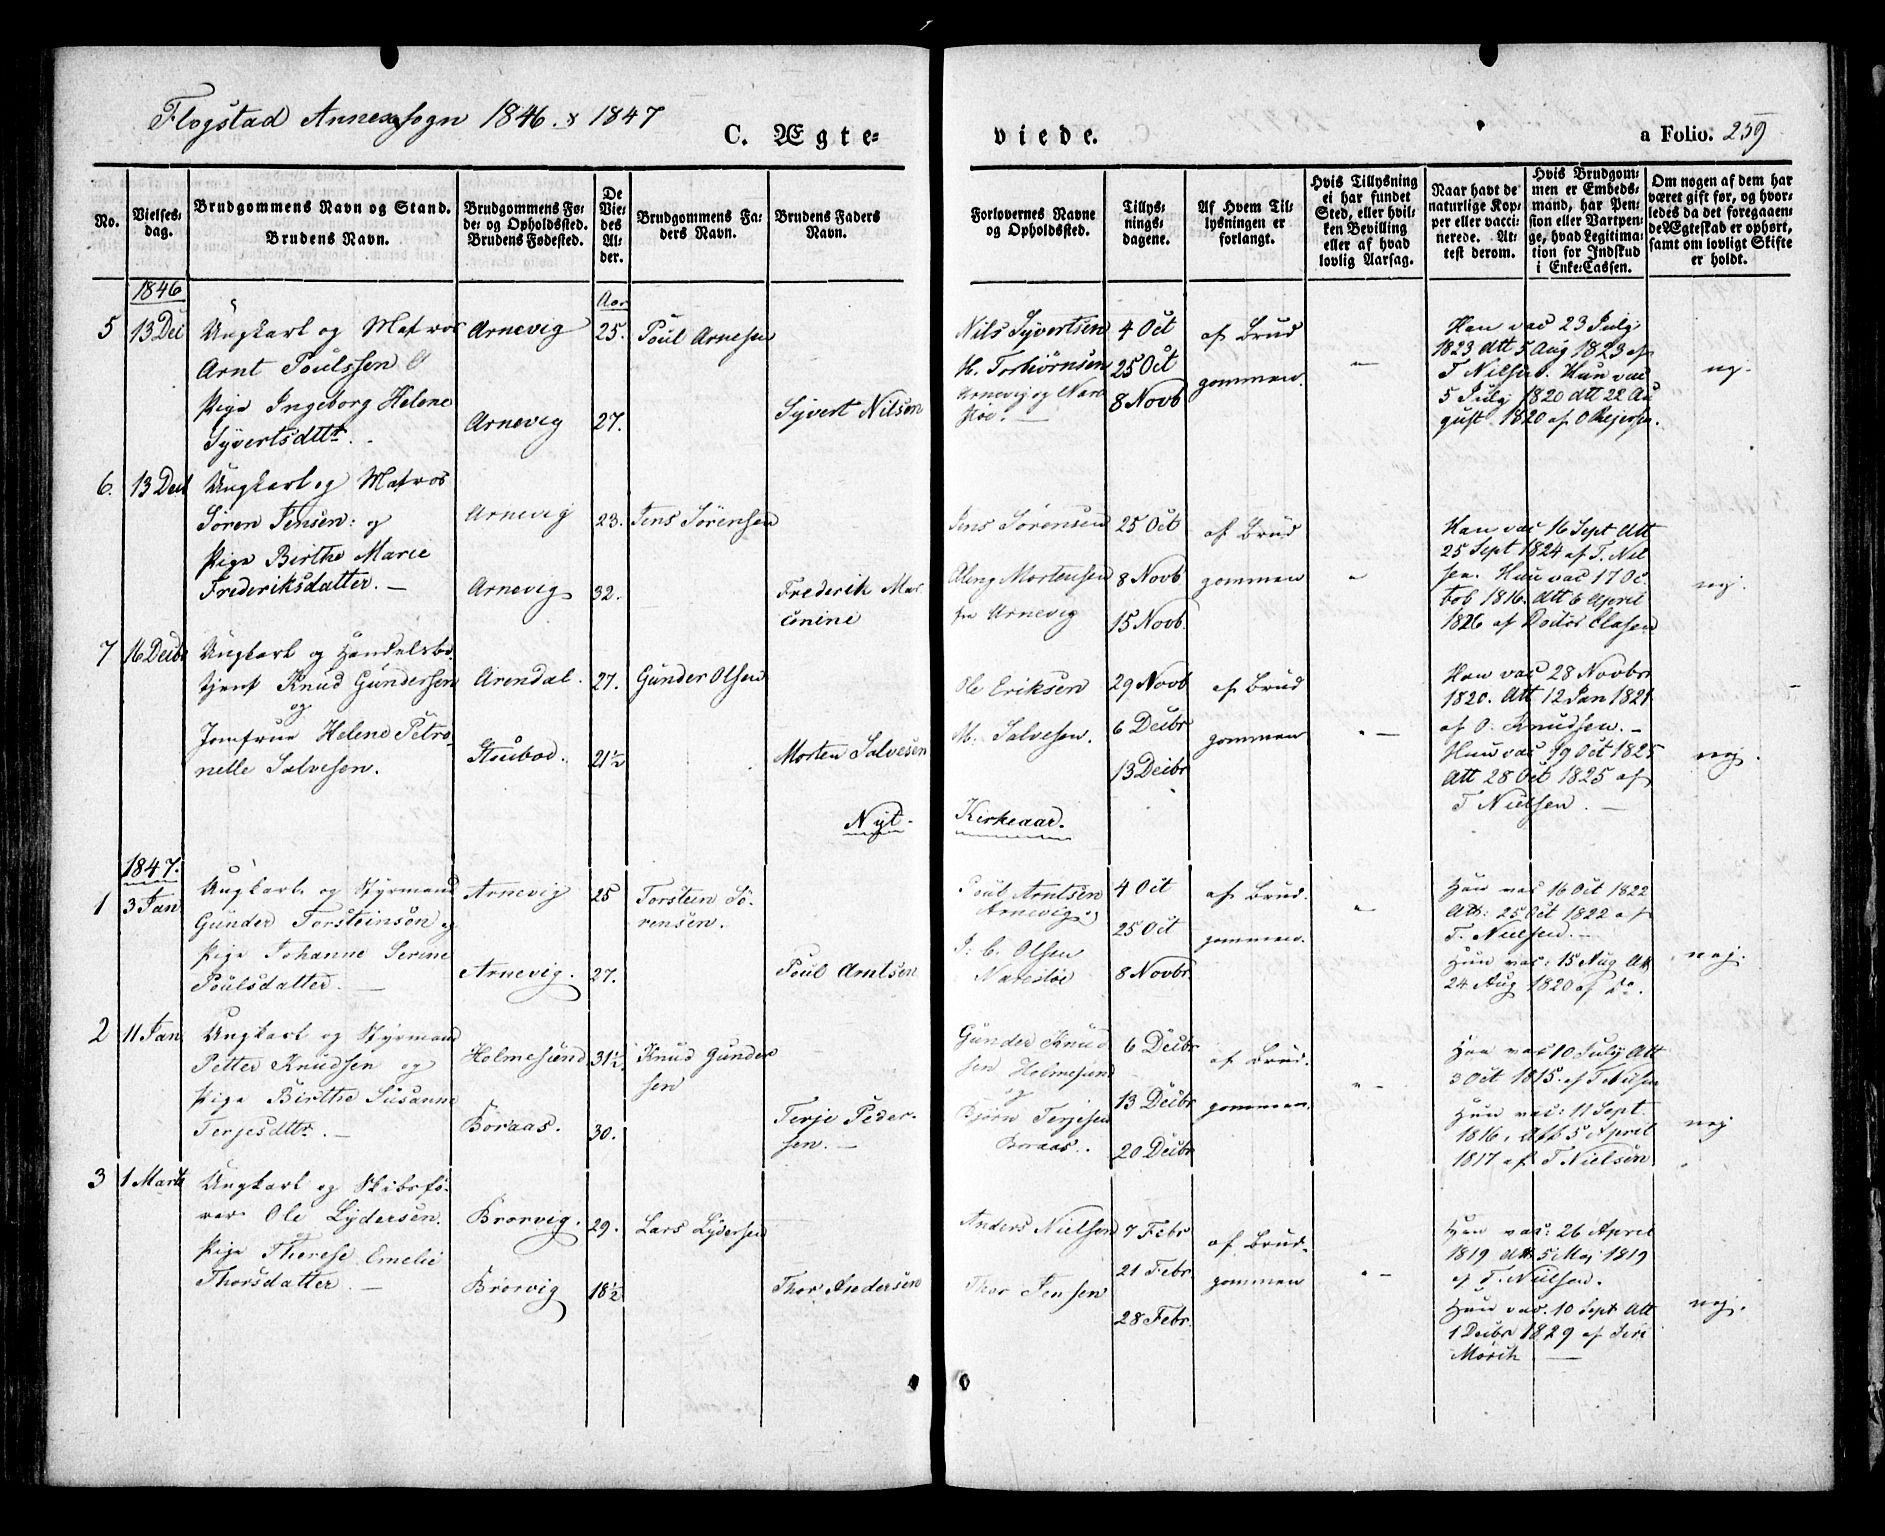 Flogstad Annexsogn 1846 & 1847
C. Ægte=
viede.
a Folio. 259
No.
Vielses=
dag.
Brudgommens Navn og Stand.
Brudens Navn.
Brudgommens Fø=
de= og Opholdssted.
Brudens Fødested.
De
Vie=
des
Al=
der.
Brudgommens Fa=
ders Navn.
Brudens Faders
Navn.
Forlovernes Navne
og Opholdssted.
Tillys=
nings=
dagene.
Af Hvem Til=
lysningen er
forlangt.
Hvis Tillysning
ei har fundet
Sted, eller hvil=
ken Bevilling
eller af hvad
lovlig Aarsag.
Naar havt de
naturlige Kop=
per eller vacci=
nerede. At=
test derom.
Hvis Brudgom=
men er Embeds=
mand, har Pen=
sion eller Vartpen=
ge, hvad Legitima=
tion for Indskud
i Enke=Cassen.
Om nogen af dem har
været gift før, og hvor=
ledes da det foregaaen=
de Ægteskab er ophørt,
samt om lovligt Skifte
er holdt.
1846
Aar
5
13 Dec
Ungkarl og Matros
Arnt Poulssen &
Pige Ingeborg Helene
Syvertsdttr. -
Arnevig
Arnevig
25.
27.
Poul Arnesen
Syvert Nilsen
Nils Syvertsen
H. Torbiørnsen
Arnevig og Nare
støe. -
4 Oct
25 Oct
8 Novb
af Brud
gommen.
-
Han vac 23 July
1823 att 5 Aug 1823 af
T Nilsen. Hun vac
5 July 1820 att 22 Au
gust 1820 af O Rejersen.
nej.
6.
13 Decb
Ungkarl og Matros
Søren Jensen: og
Pige Birthe Marie
Frederiksdatter. -
Arnevig
Arnevig
23.
32.
Jens Sørensen
Frederik Mar
conine
Jens Sørensen
Mortensen
fra Arnevig
25 Oct
8 Novb
15 Novb.
af Brud
gommen
"
Han vac 16 Sept Att
25 Sept 1824 af T. Niel
sen. Hun vac 17 Oc
tob 1816. Att 6 April
1826 af Doctor Clasen
nej.
7
16 Decbr
Ungkarl og Handelsbe
tjent Knud Gundersen
og
Jomfrue Helene Petro=
nelle Salvesen.
Arendal.
Stuebod.
27.
21½
Gunder Olsen
Morten Salvesen
Ole Eriksen
M. Salvesen.
29 Novb
6 Decbr
13 Decbr
af Brud
gommen
" -
Han vac 28 Novbr
1820. Att 12 Jan 1821
af O. Knudsen. -
Hun vac 19 Oct 1825
Att 28 Oct 1825 af
T Nielsen. -
nej.
Nyt.
Kirkeaar.
1847.
1
3 Jan
Ungkarl og Styrmand
Gunder Torsteinson og
Pige Johanne Serine
Poulsdatter. -
Arnevig
Arnevig.
25
27.
Torstein Sø=
rensen.
Poul Arntsen
Poul Arntsen
Arnevig og
J. C. Olsen
Narestøe
4 Oct
25 Oct
8 Novbr
af Brud.
gommen.
"
Han vac 16 Oct 1822
Att: 25 Oct 1822 af
T. Nielsen. -
Hun vac: 15 Aug Att
24 Aug 1820 af Do.
nej.
2
11 Jan
Ungkarl og Styrmand
Petter Knudsen og
Pige Birthe Susanne
Terjesdttr. -
Holmesund
Boraas.
31½
30.
Knud Gunder
sen
Terje Peder=
sen. -
Gunder Knud
sen Holmesund
og
Bjørn Terjesen
Boraas.
6 Decbr
13 Decbr
20 Decbr
af Brud.
gommen.
" -
Han vac 10 July Att
3 Oct 1815. af T Nielsen
Hun vac: 11 Sept
1816, Att 5 April
1817 af T Nielsen
nej
3
1 Marts
Ungkarl og Skibsfø=
rer Ole Lydersen.
Pige Therese Emelie
Thorsdatter. -
Brorvig.
Brorvig
29.
18½
Lars Lydersen
Thor Andersen
Anders Nielsen
Thor Jensen
7 Febr
21 Febr.
28 Febr.
af Brud=
gommen
" -
Han vac: 26 April
1819 att. 5 Maj 1819
af T. Nielsen.
Hun vac. 10 Sept Att
1 Decbr 1829 af
nej.